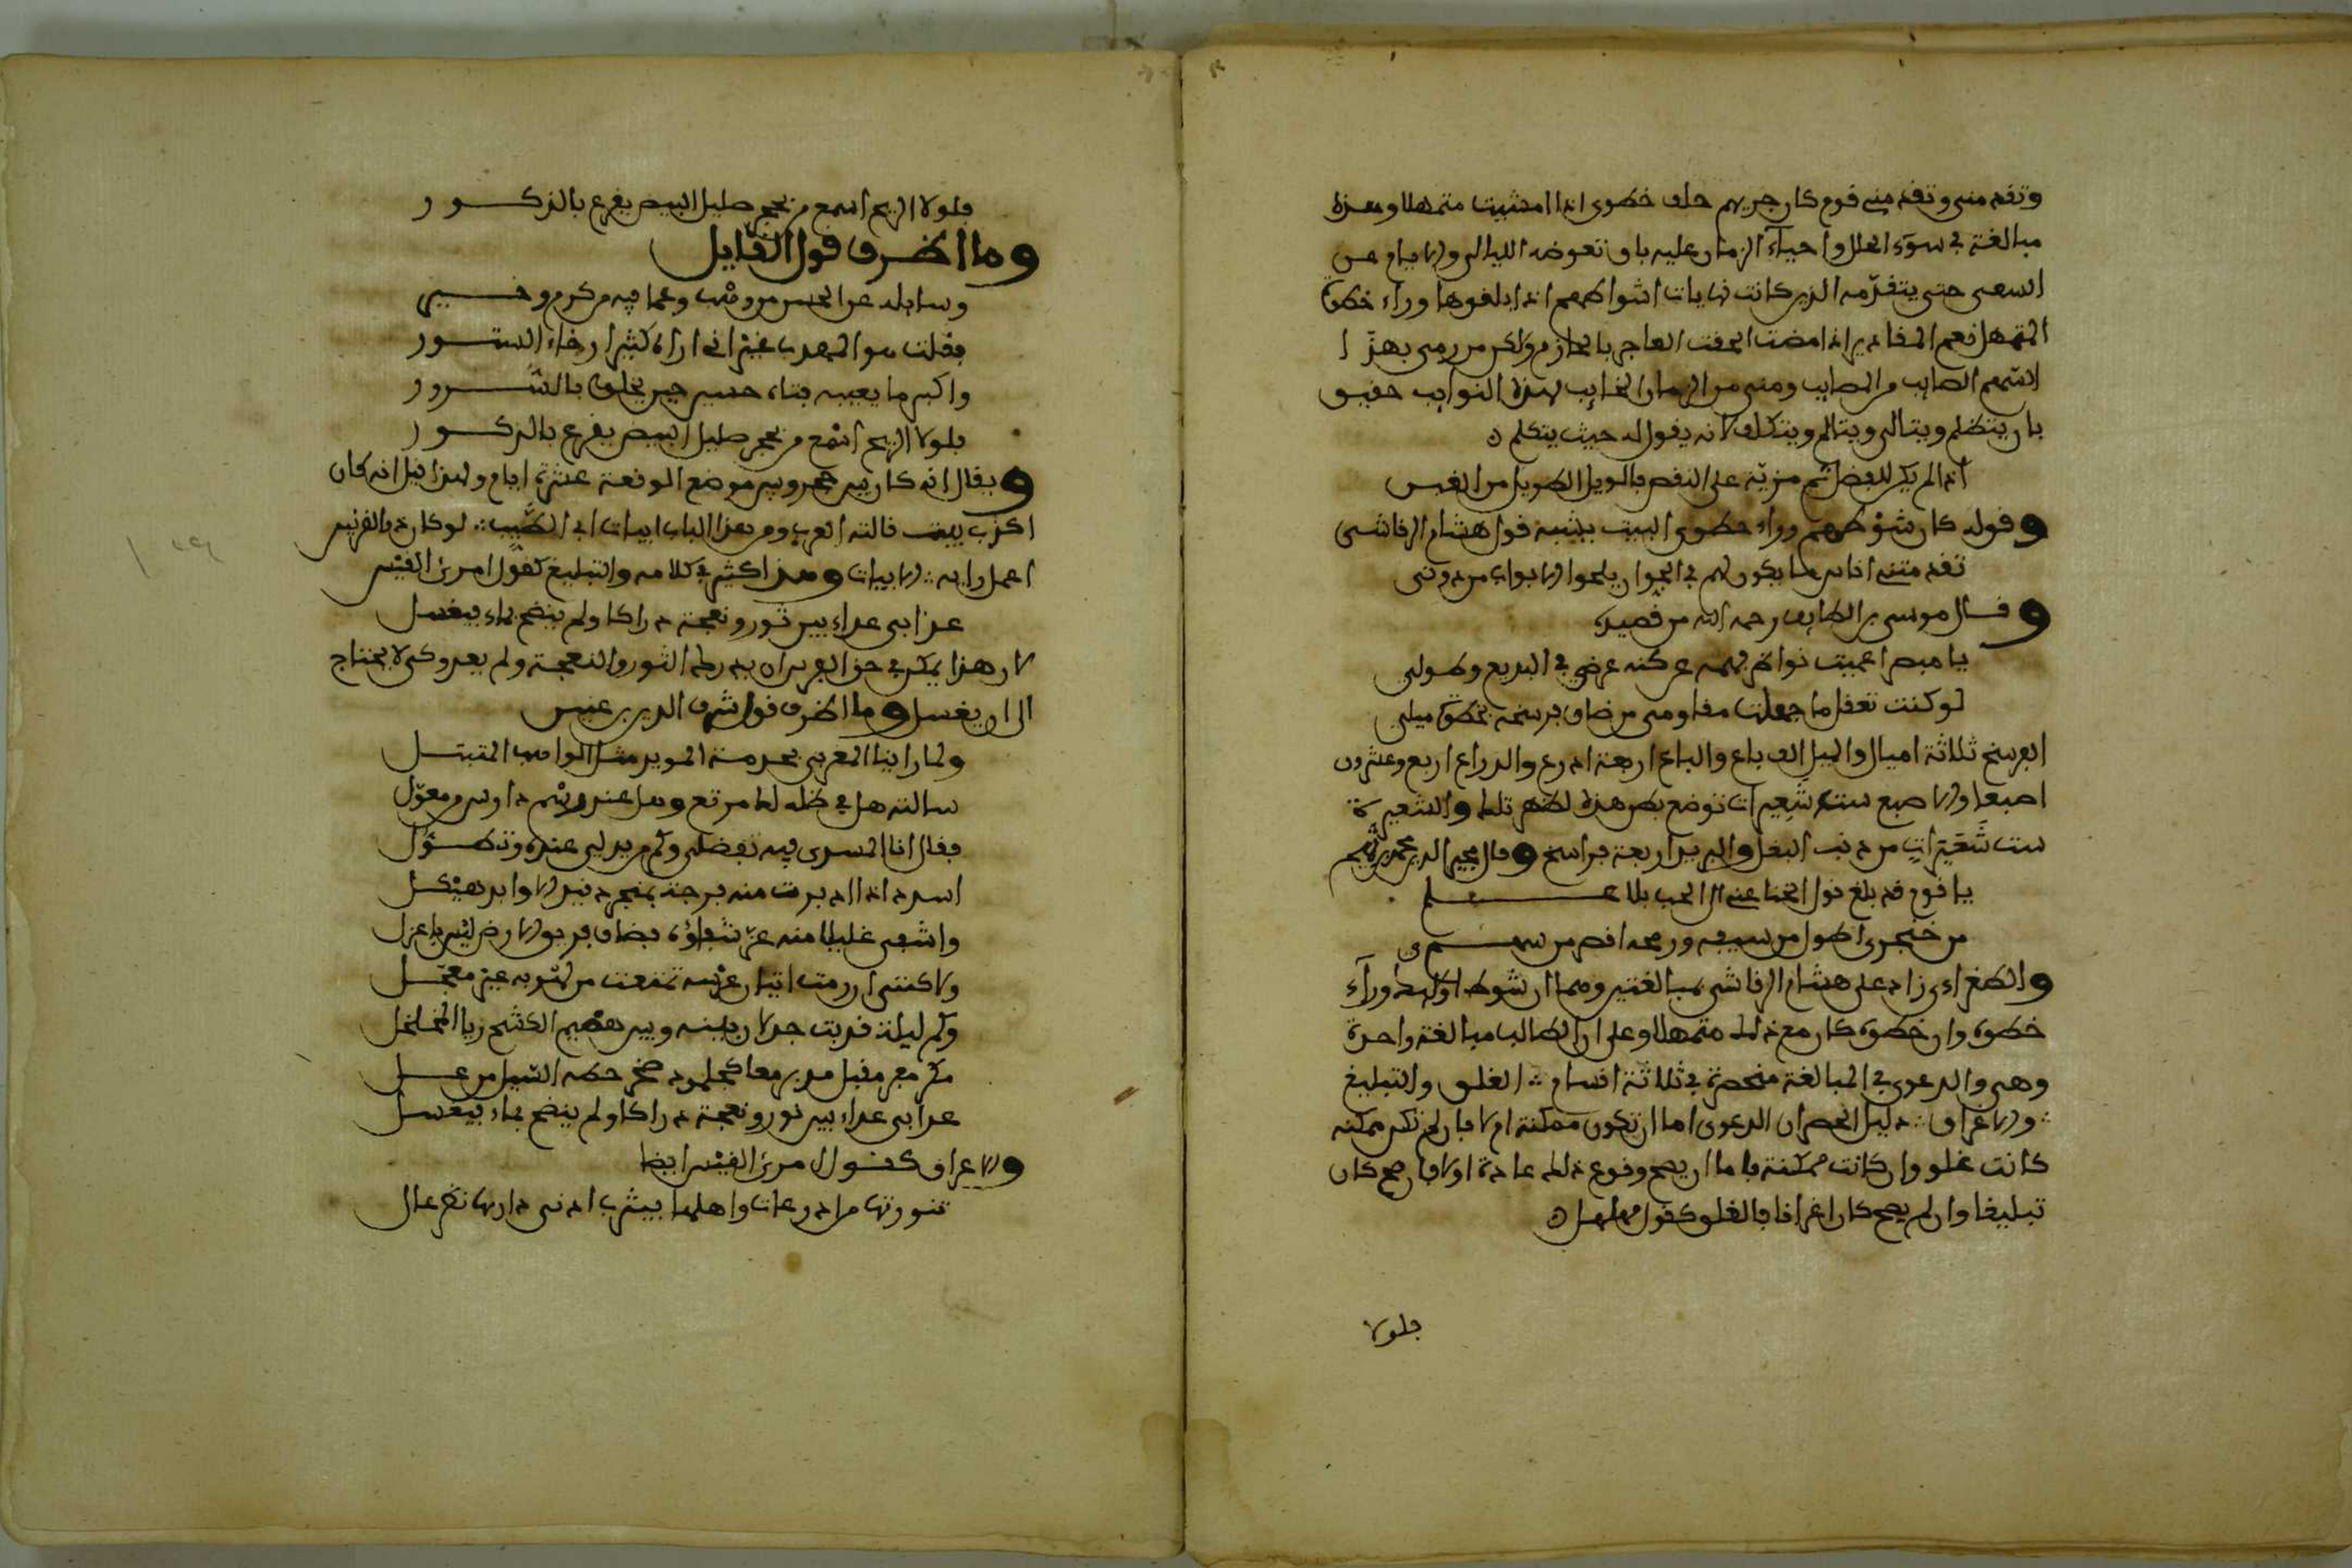 وتقدمني وتقدمني قوم كان جريهم خلف خطوى اذا امشيت متمهلا وهذه
مبالغة في سوء الحال واحياء الزمان عليه بما وتعوضه الليالي والايام عن
السعى حتى يتقدمه الذين كانت نهايات اشواطهم اذا بلغوها وراء خطوة
المتمهل نعم المقادير اذا مضت الحقت العاجز بالحازم ولكن من رمى بهذا
السهم الصايب والمصايب ومنى من الزمان الخايب بهذه النوايب حقيق
بان يتظلم ويتالى ويتالم ويتكلف لانه يقول له حيث يتكلم
اذا لم يكن للفضل ثم مزية على النقص فالويل الطويل من الغبن
وقوله كان شوطهم وراء خطوى البيت يشبه قول هشام الرقاشى
تقدمتني اناس ما يكون لهم في الحق ان يلجوا الابواب من دوني
وقال موسى بن الطايف رحمه الله من قصيدة
يا مبصرا عميت نواظر فهمه عن كنه عرضي في البديع وطولي
لو كنت تعقل ما جعلت مقاومي من ضاق فرسخه بخطوة ميلي
الفرسخ ثلاثة اميال والميل الف باع والباع اربعة اذرع والذراع اربع وعشرون
اصبعا والاصبع ست شعيرات توضع بطن هذه لظهر تلك والشعيرة
ست شعرات من ذنب البغل والبريد اربعة فراسخ وقال مجير الدين محمد بن تميم
يا قوم قد بلغ نول الخنا عني الى الحب بلا علم
من خنجرى اطول من سيفه ورمحه اقصر من سهمى
والطغراءى زاد على هشام الرقاشي بمبالغتين وهما ان شوط اولئك وراء
خطوه وان خطوه كان مع ذلك متمهلا وعلى ان الطالب مبالغة واحدة
وهى والدعوى في المبالغة منحصرة في ثلاثة اقسام الغلو والتبليغ
والاغراق دليل الحصر ان الدعوى اما ان تكون ممكنة ام لا فان لم تكن ممكنه
كانت غلو وان كانت ممكنة فاما ان يصح وقوع ذلك عادة او لا فان صح كان
تبليغا وان لم يصح كان اغراقا فالغلو كقول مهلهل
فلولا
فلولا الريح اسمع من بحجر صليل البيض يقرع بالذكور
وما اظرف قول القايل
وسايله عن الحسن بن وهب وعما فيه من كرم وخير
فقلت هو المهذب غير اني اراه كثير ارخاء الستور
واكبر ما يعيبه فتاه حسين حين يخلو بالسرور
فلولا الريح اسمع من بحجر صليل البيض يقرع بالذكور
ويقال انه كان بين حجر وبين موضع الوقعة عشرة ايام ولهذا قيل انه كان
اكذب بيت قالته العرب ومن هذا الباب ابيات ابى الطيب لو كان ذو القرنين
اعمل رايه الابيات وهذا كثير في كلامه والتبليغ كقول امرئ القيس
عدا بى عداء بين ثور ونعجة دراكا ولم ينضح بماء فيغسل
لان هذا يمكن في حق الفرس ان يدرك الثور والنعجة ولم يعد وكى لا يحتاج
الى ان يغسل وما اظرف قول شرف الدين بن عنين
ولما راينا المعرى بحرمنة المويد مثل الراهب المتبتل
سالته هل في ظله لك مرتع وهل عند رسم دارس من معول
فقال انا المسدى فيه تفضلى وكم من يد لى عنده وتطول
اسد اذا ادبرت منه فرجة بمنجرد قيد الاوابد هيكل
واشفى غليلا منه عز شفاؤه بضاف فويق الارض ليس باعزل
ولاكننى ان رمت اتيان عرسه تمتعت من لهو به غير معجل
وكم ليلة قد بت جذلان بينه وبين هضيم الكشح ريا المخلخل
مكر مفر مقبل مدبر معا كجلمود صخر حطه السيل من عل
عدا بى عداء بين ثور ونعجة دراكا ولم ينضح بماء فيغسل
والاغراق كقول امرئ القيس ايضا
تنورتها من اذرعات واهلها بيثرب ادنى دارها نظر عال